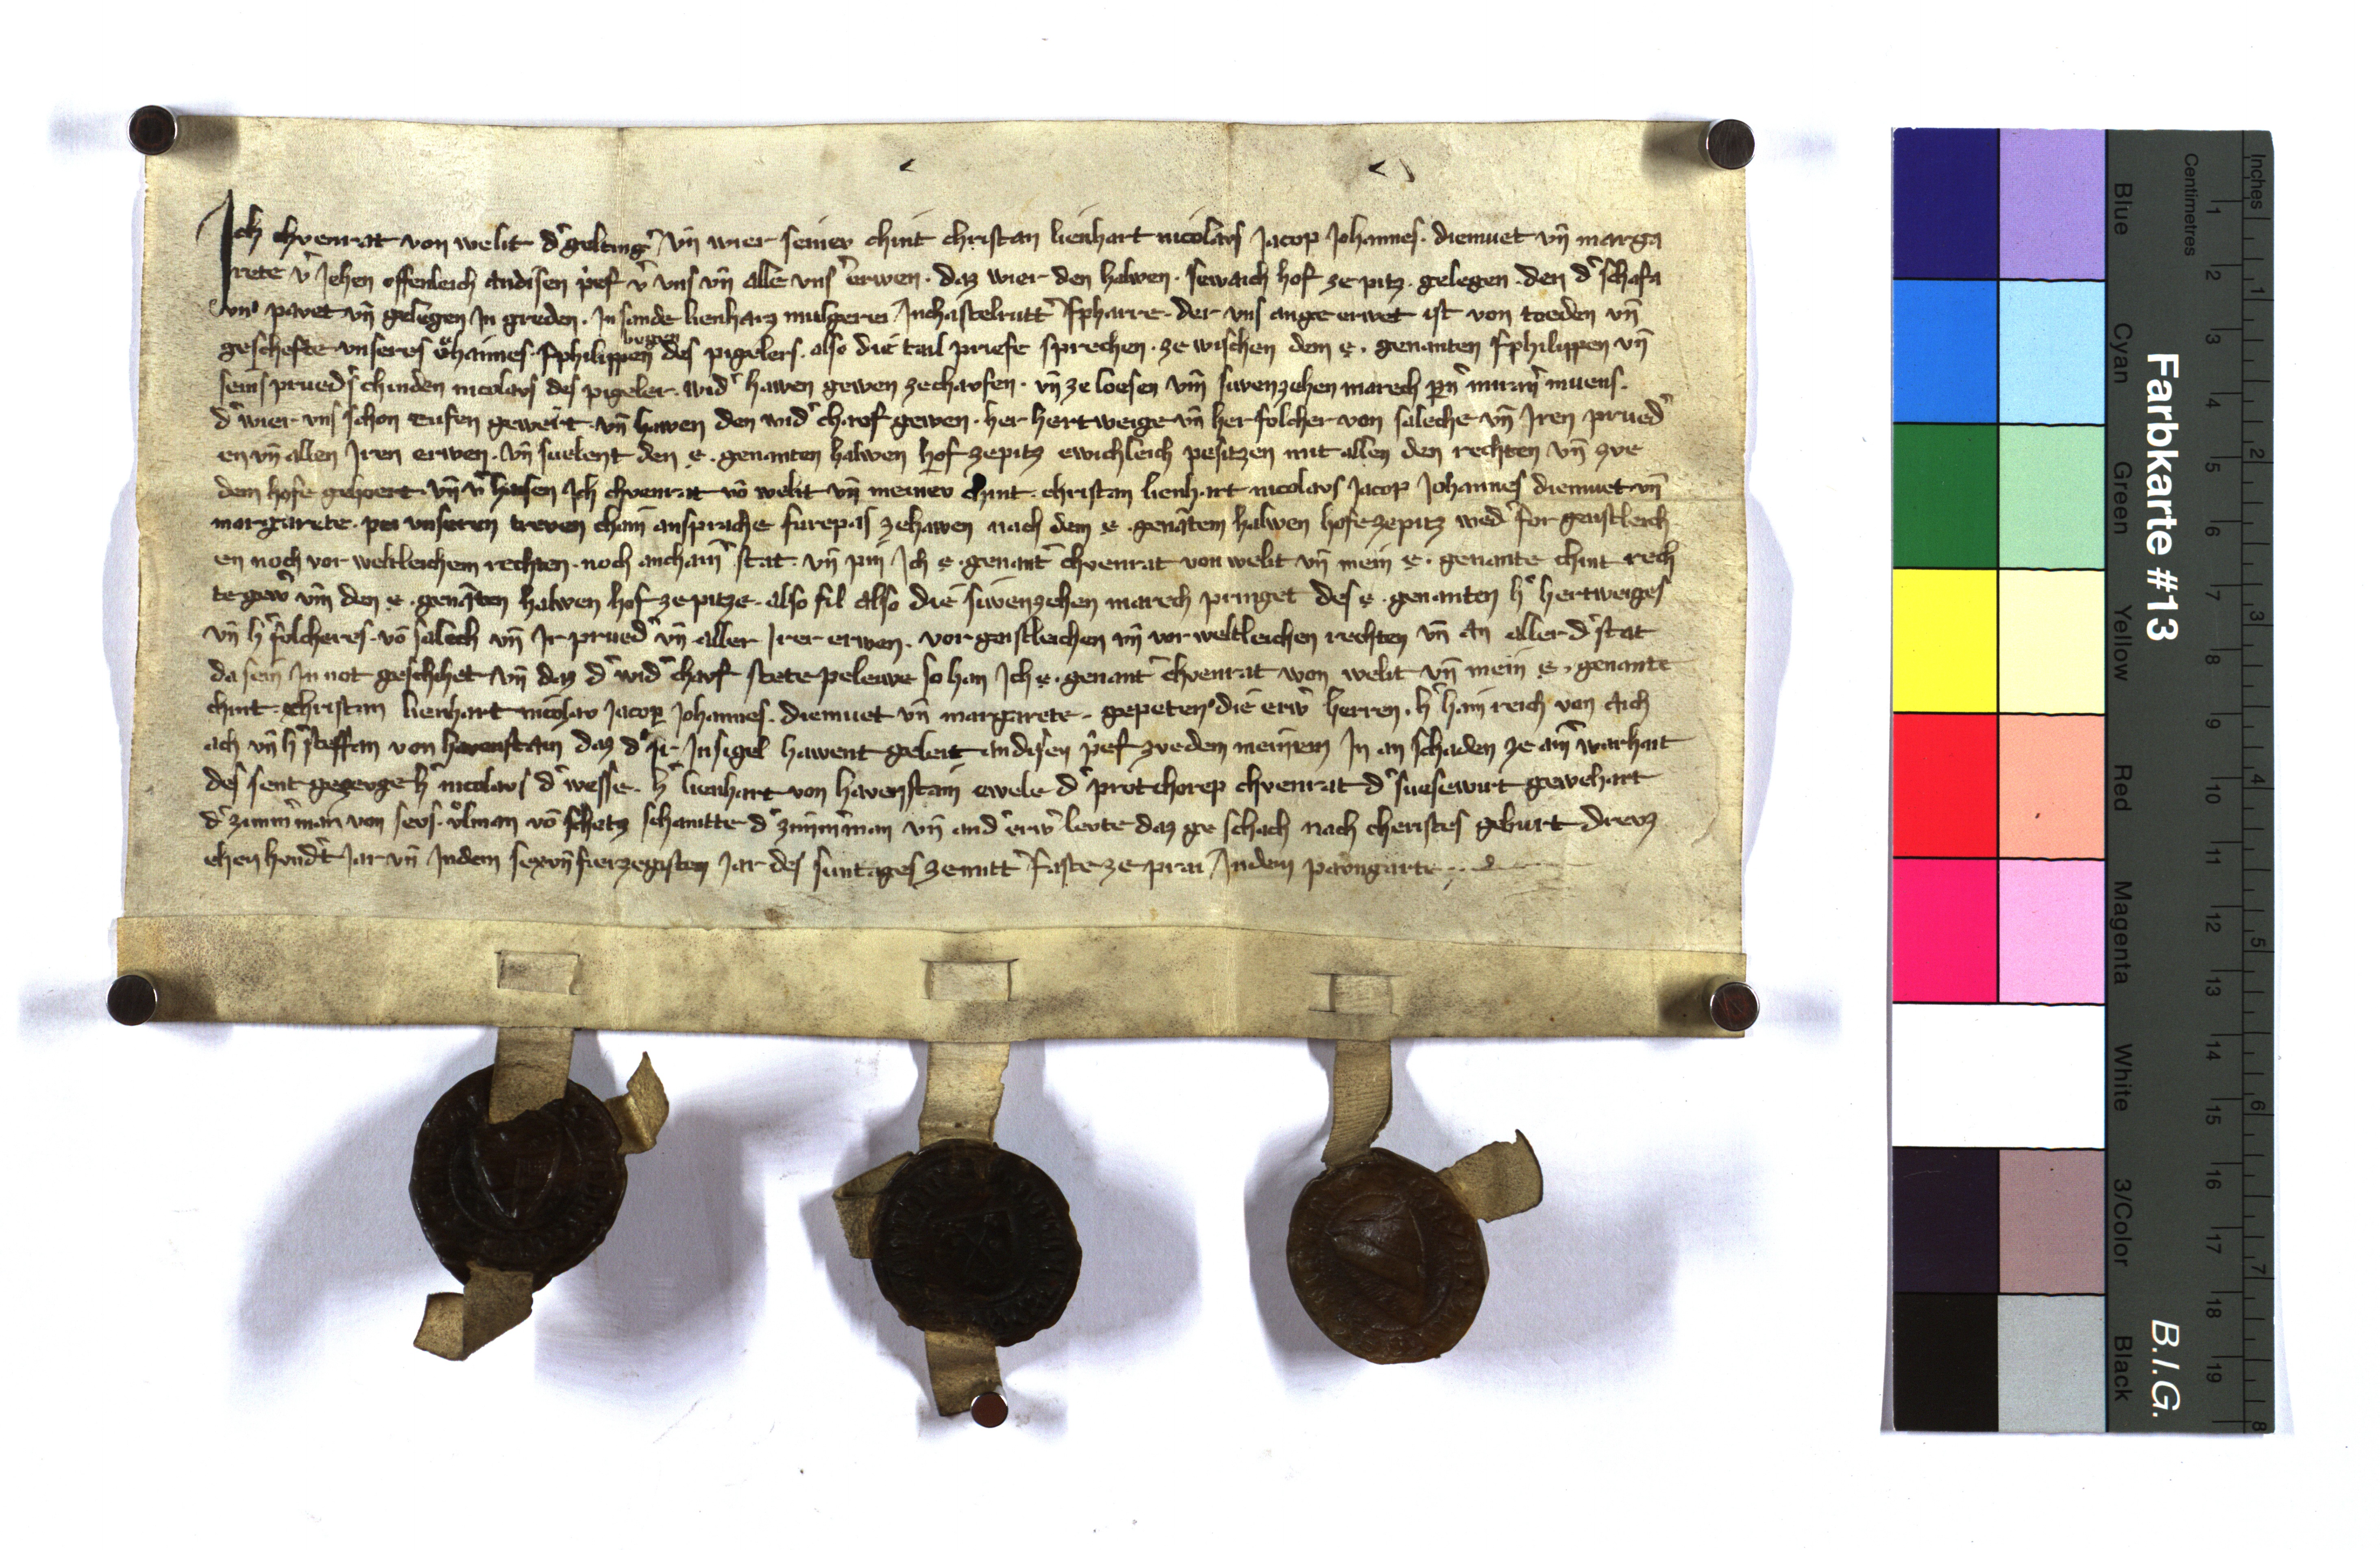 Ich chvenrat von welit d͛ gelting͛ vn̄ wier seinev chint christan lienhart nicolavs Jacop Johannes. diemuet vn̄ marga
rete v͛ Jehen offenleich andisen p͛ef v͛ vns vn̄ alle vns͛ erwen. daz wier den halwen. sewaich hof ze pitz. gelegen. den d͛ schafa
vn͛ pavet vn̄ gelegen In greden. In sande lienharz mulgerei Inchastelrutt͛ Pharre. der vns ange erwet ist von toeden vn̄
geschefte vnseres oͤhaimes. Philippen des pigelers. also die tail priefe sprechen. ze wischen dem e. genanten Philippen vn̄
seins prued͛s chinden nicolavs des pigeler. wid͛ hawen gewen zechavfen. vn̄ ze loesen vm̄ siwenzehen marech p͛n͛ muran͛ muens.
d͛ wier vns schon tufen gewert. vn̄ hawen den wid͛ chavf gewen. her hertweige vn̄ her folcher von saleche vn̄ Iren prued͛
en vn̄ allen Iren erwen. vn̄ suelent den e. genanten halwen hof zepitz ewichleich pesitzen mit allen den rechten vn̄ zve
dem hofe gehoert. vn̄ v͛haisen Ich chvenrat vō welit vn̄ meinev chint. christan lienhart nicolavs Jacop Johannes diemuet vn̄
margarete. pei vnseren treven chain ansprache furepas zehawen nach dem e. genātem halwen hofe zepitz wed͛ for geistleich
en noch vor weltleichem rechten. noch anchain͛ stat. vn̄ pin Ich e. genant͛ chvenrat von welit vn̄ mein e. genante chint rech
te gew͛ vm̄ den e. genāten halwen hof ze pitze. also fil also die siwenzehen marech pringet des e. genanten h͛ hertweiges
vn̄ h͛ folcheres. vō salech vn̄ Ir prued͛ vn̄ aller Irer erwen. vor geistleichen vn̄ vor weltleichen rechten vn̄ an aller d͛ stat
da sein In not geschihet vn̄ daz d͛ wid͛ chavf stete peleiwe so han Ich e. genant͛ chvenrat von welit vn̄ mein e. genante
chint. christan lienhart nicolav Jacop Johannes. diemuet vn̄ margarete. gepeten die erw͛ herren. h͛ hainreich von aich
ach vn̄ h͛ steffan von havenstain daz d͛ Ir Insigel hawent geleit an disen p͛ef zvedem meinem In an schaden ze ain͛ warhait
des sent gezevge h͛ nicolavs d͛ wesse. h͛ lienhart von havenstain ewele d͛ protchorep chvenrat d͛ suesewirt gewehart
d͛ zimm͛man von sevs. volman vō schetz schanitte d͛ zimm͛man vn̄ and͛ erw͛ levte daz ge schach nach cheristes geburt drevz
ehen hvnd͛t Jar vn̄ Indem sexvn̄fierzegisten Jar des suntages ze mitt͛ faste ze prai Indem pavngarte
Farbkarte #13
B.I.G.
Blue
Cyan
Green
Yellow
Red
Magenta
White
3/Color
Black
Centimetres
Inches
1 2 3 4 5 6 7 8 9 10 11 12 13 14 15 16 17 18 19
1 2 3 4 5 6 7 8